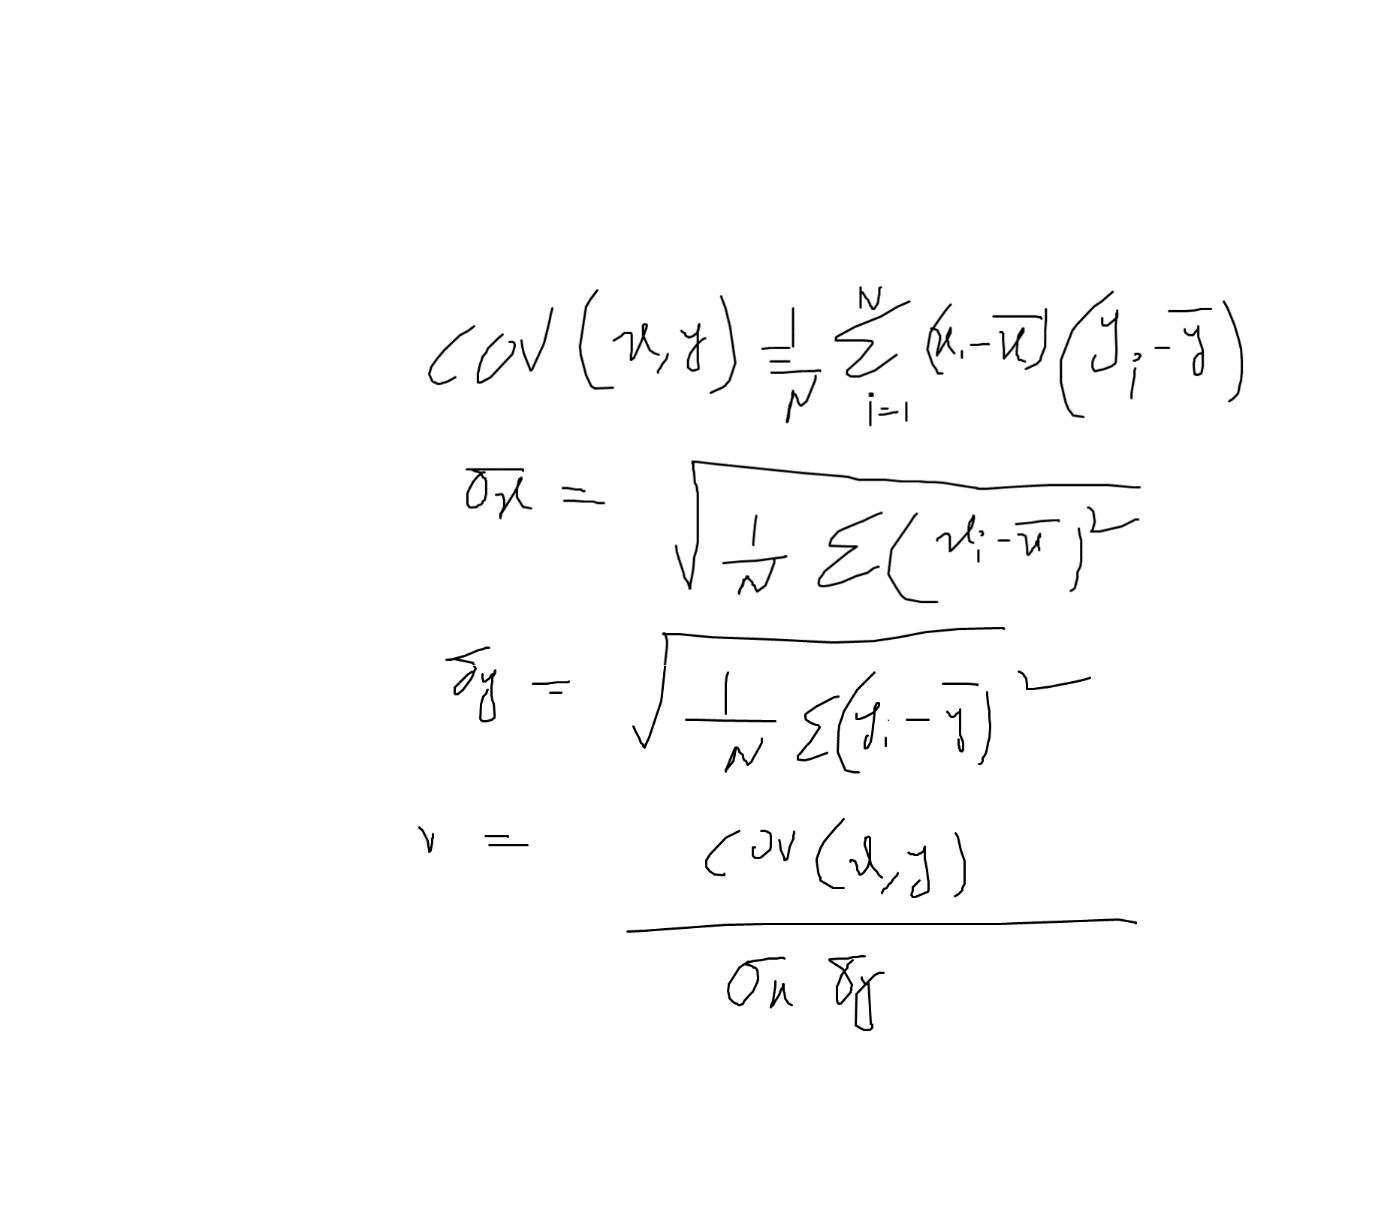 cov(x,y) = 1/N Σ_{i=1}^{N} (x_i - x̄)(y_i - ȳ)
σx = √(1/N Σ(x_i - x̄)²)
σy = √(1/N Σ(y_i - ȳ)²)
r = cov(x,y) / σx σy